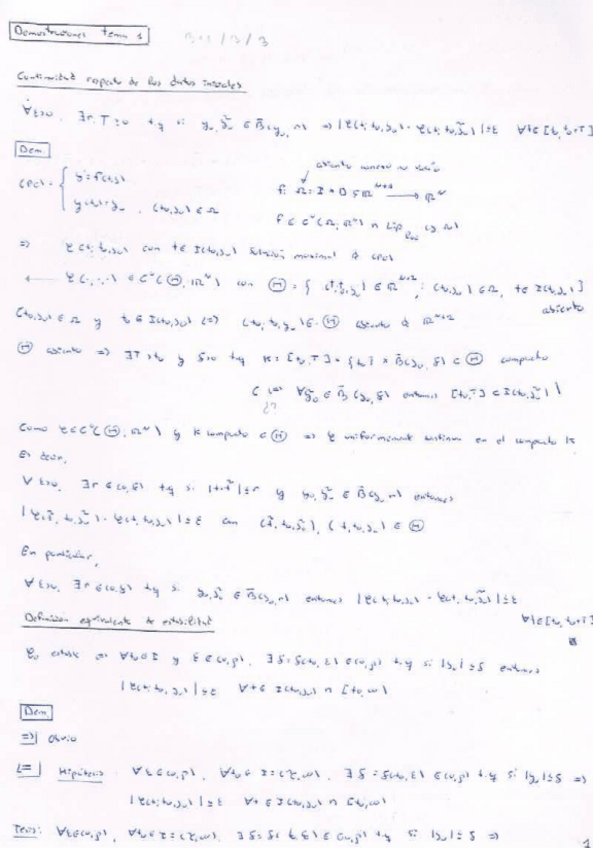 Demostraciones tema 1
Continuidad respecto de los datos iniciales
∀ε>0, ∃r,T>0 t.q. si y₀, ỹ₀ ∈ B̄(y₀, r) ⇒ |φ(t;t₀,y₀) - φ(t;t₀,ỹ₀)| ≤ ε ∀t∈[t₀,t₀+T]
Dem
abierto conexo no vacío
(PC) = { y' = f(t,y)
f: Ω = I × D ⊆ ℝᴺ⁺¹ → ℝᴺ
y(t₀) = y₀, (t₀,y₀) ∈ Ω
f ∈ C⁰(Ω; ℝᴺ) ∩ Lip (y, Ω)
⇒ φ(t;t₀,y₀) con t ∈ I(t₀,y₀) solución maximal de (PC)
φ(·;·,·) ∈ C⁰(Θ; ℝᴺ) con Θ = { (t,t₀,y₀) ∈ ℝᴺ⁺²; (t₀,y₀) ∈ Ω, t ∈ I(t₀,y₀) }
abierto
(t₀,y₀) ∈ Ω y t₀ ∈ I(t₀,y₀) ⇔ (t₀,t₀,y₀) ∈ Θ abierto de ℝᴺ⁺²
Θ abierto ⇒ ∃T>t₀ y δ>0 t.q. K = [t₀,T] × {t₀} × B̄(y₀,δ) ⊂ Θ compacto
( ⇔ ∀ỹ₀ ∈ B̄(y₀,δ) entonces [t₀,T] ⊂ I(t₀,ỹ₀) )
¿?
Como φ ∈ C⁰(Θ; ℝᴺ) y K compacto ⊂ Θ ⇒ φ uniformemente continua en el compacto K
Es decir,
∀ε>0, ∃r ∈ (0,δ) t.q. si |t-t̃| ≤ r y y₀,ỹ₀ ∈ B̄(y₀,r) entonces
|φ(t̃;t₀,ỹ₀) - φ(t;t₀,y₀)| ≤ ε con (t̃,t₀,ỹ₀), (t,t₀,y₀) ∈ Θ
En particular,
∀ε>0, ∃r ∈ (0,δ) t.q. si y₀,ỹ₀ ∈ B̄(y₀,r) entonces |φ(t;t₀,y₀) - φ(t;t₀,ỹ₀)| ≤ ε
∀t∈[t₀,t₀+T]
Definición equivalente de estabilidad
φ₀ estable ⇔ ∀t₀∈I y ε∈(0,ρ), ∃δ=δ(t₀,ε) ∈ (0,ρ) t.q. si |y₀| ≤ δ entonces
|φ(t;t₀,y₀)| ≤ ε ∀t ∈ I(t₀,y₀) ∩ [t₀,∞)
Dem
⇒| Obvio
⇐| Hipótesis: ∀ε∈(0,ρ), ∀t₀ ∈ I=(τ,∞), ∃δ=δ(t₀,ε) ∈ (0,ρ) t.q. si |y₀| ≤ δ ⇒
|φ(t;t₀,y₀)| ≤ ε ∀t ∈ I(t₀,y₀) ∩ [t₀,∞)
Tesis: ∀ε∈(0,ρ), ∀t₀ ∈ I=(τ,∞), ∃δ=δ(t₀,ε) ∈ (0,ρ) t.q. si |y₀| ≤ δ ⇒
1